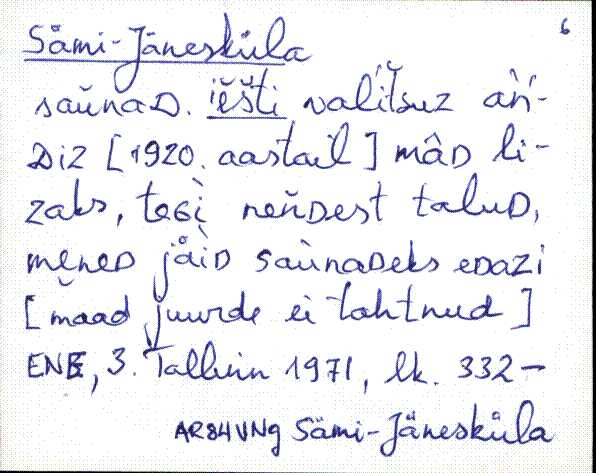 6
Sämi-Jänesküla
saŭnaD. iĕšti valitsuz aǹ-
Diz [1920. aastail] mâD li-
zaks, teGì neǹDest taluD,
meneD jåìD saùnaDeks eDazi
[maad juurde ei tahtnud]
ENE, 3. Tallinn 1971, lk. 332-
Sämi-Jänesküla